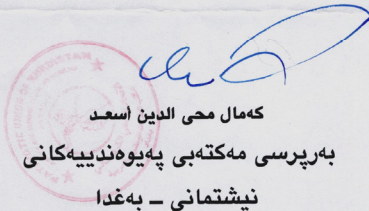 كەمال محی الدین أسعد
بەرپرسی مەكتەبی پەیوەندییەكانی
نیشتمانی – بەغدا